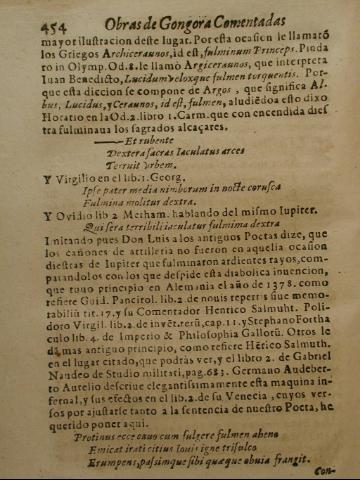 454 Obras de Gongora Comentadas
mayor ilustracion deste lugar. Por esta ocasion le llamarõ
los Griegos Archiceraunos, id est, fulminum Princeps. Pinda
ro in Olymp. Od. 8. le llamò Argiceraunos, que interpreta
Iuan Benedicto, Lucidum veloxque fulmen torquentis. Por-
que esta diccion se compone de Argos, que significa Al-
bus, Lucidus, y Ceraunos, id est, fulmen, aludiẽdo a esto dixo
Horatio en la Od. 2. libro 1. Carm. que con encendida dies
tra fulminaua los sagrados alcaçares.
Et rubente
Dextera sacras Iaculatus arces
Terruit Vrbem.
Y Virgilio en el lib. 1. Georg.
Ipse pater media nimborum in nocte corusca
Fulmina molitur dextra.
Y Ouidio lib 2 Metham. hablando del mismo Iupiter.
Qui fera terribili iaculatur fulmina dextra
Imitando pues Don Luis a los antiguos Poetas dize, que
los cañones de artilleria no fueron en aquella ocasion
diestras de Iupiter que fulminaron ardientes rayos, com-
parandolos con los que despide esta diabolica inuencion,
que tuuo principio en Alemania el año de 1378. como
refiere Guid. Pancirol. lib. 2 de nouis repertis siue memo-
rabiliũ tit. 17. y su Comentador Henrico Salmuht. Poli-
doro Virgil. lib. 2. de invẽt. rerũ, cap. 11. y Stephano Fortha
culo lib. 4. de Imperio & Philosophia Gallorũ. Otros le
dã mas antiguo principio, como refiere Hẽrico Salmuth.
en el lugar citado, que podràs ver, y el libro 2. de Gabriel
Naudeo de Studio militari, pag. 683. Germano Audeber-
to Aurelio descriue elegantissimamente esta maquina in-
fernal, y sus efectos en el lib. 2. de su Venecia, cuyos ver-
sos por ajustarse tanto a la sentencia de nuestro Poeta, he
querido poner aqui.
Protinus ecce cauo cum fulgere fulmen aheno
Emicat irati citius Iouis igne trisulco
Erumpens, passimque sibi quæque obuia frangit.
Con-